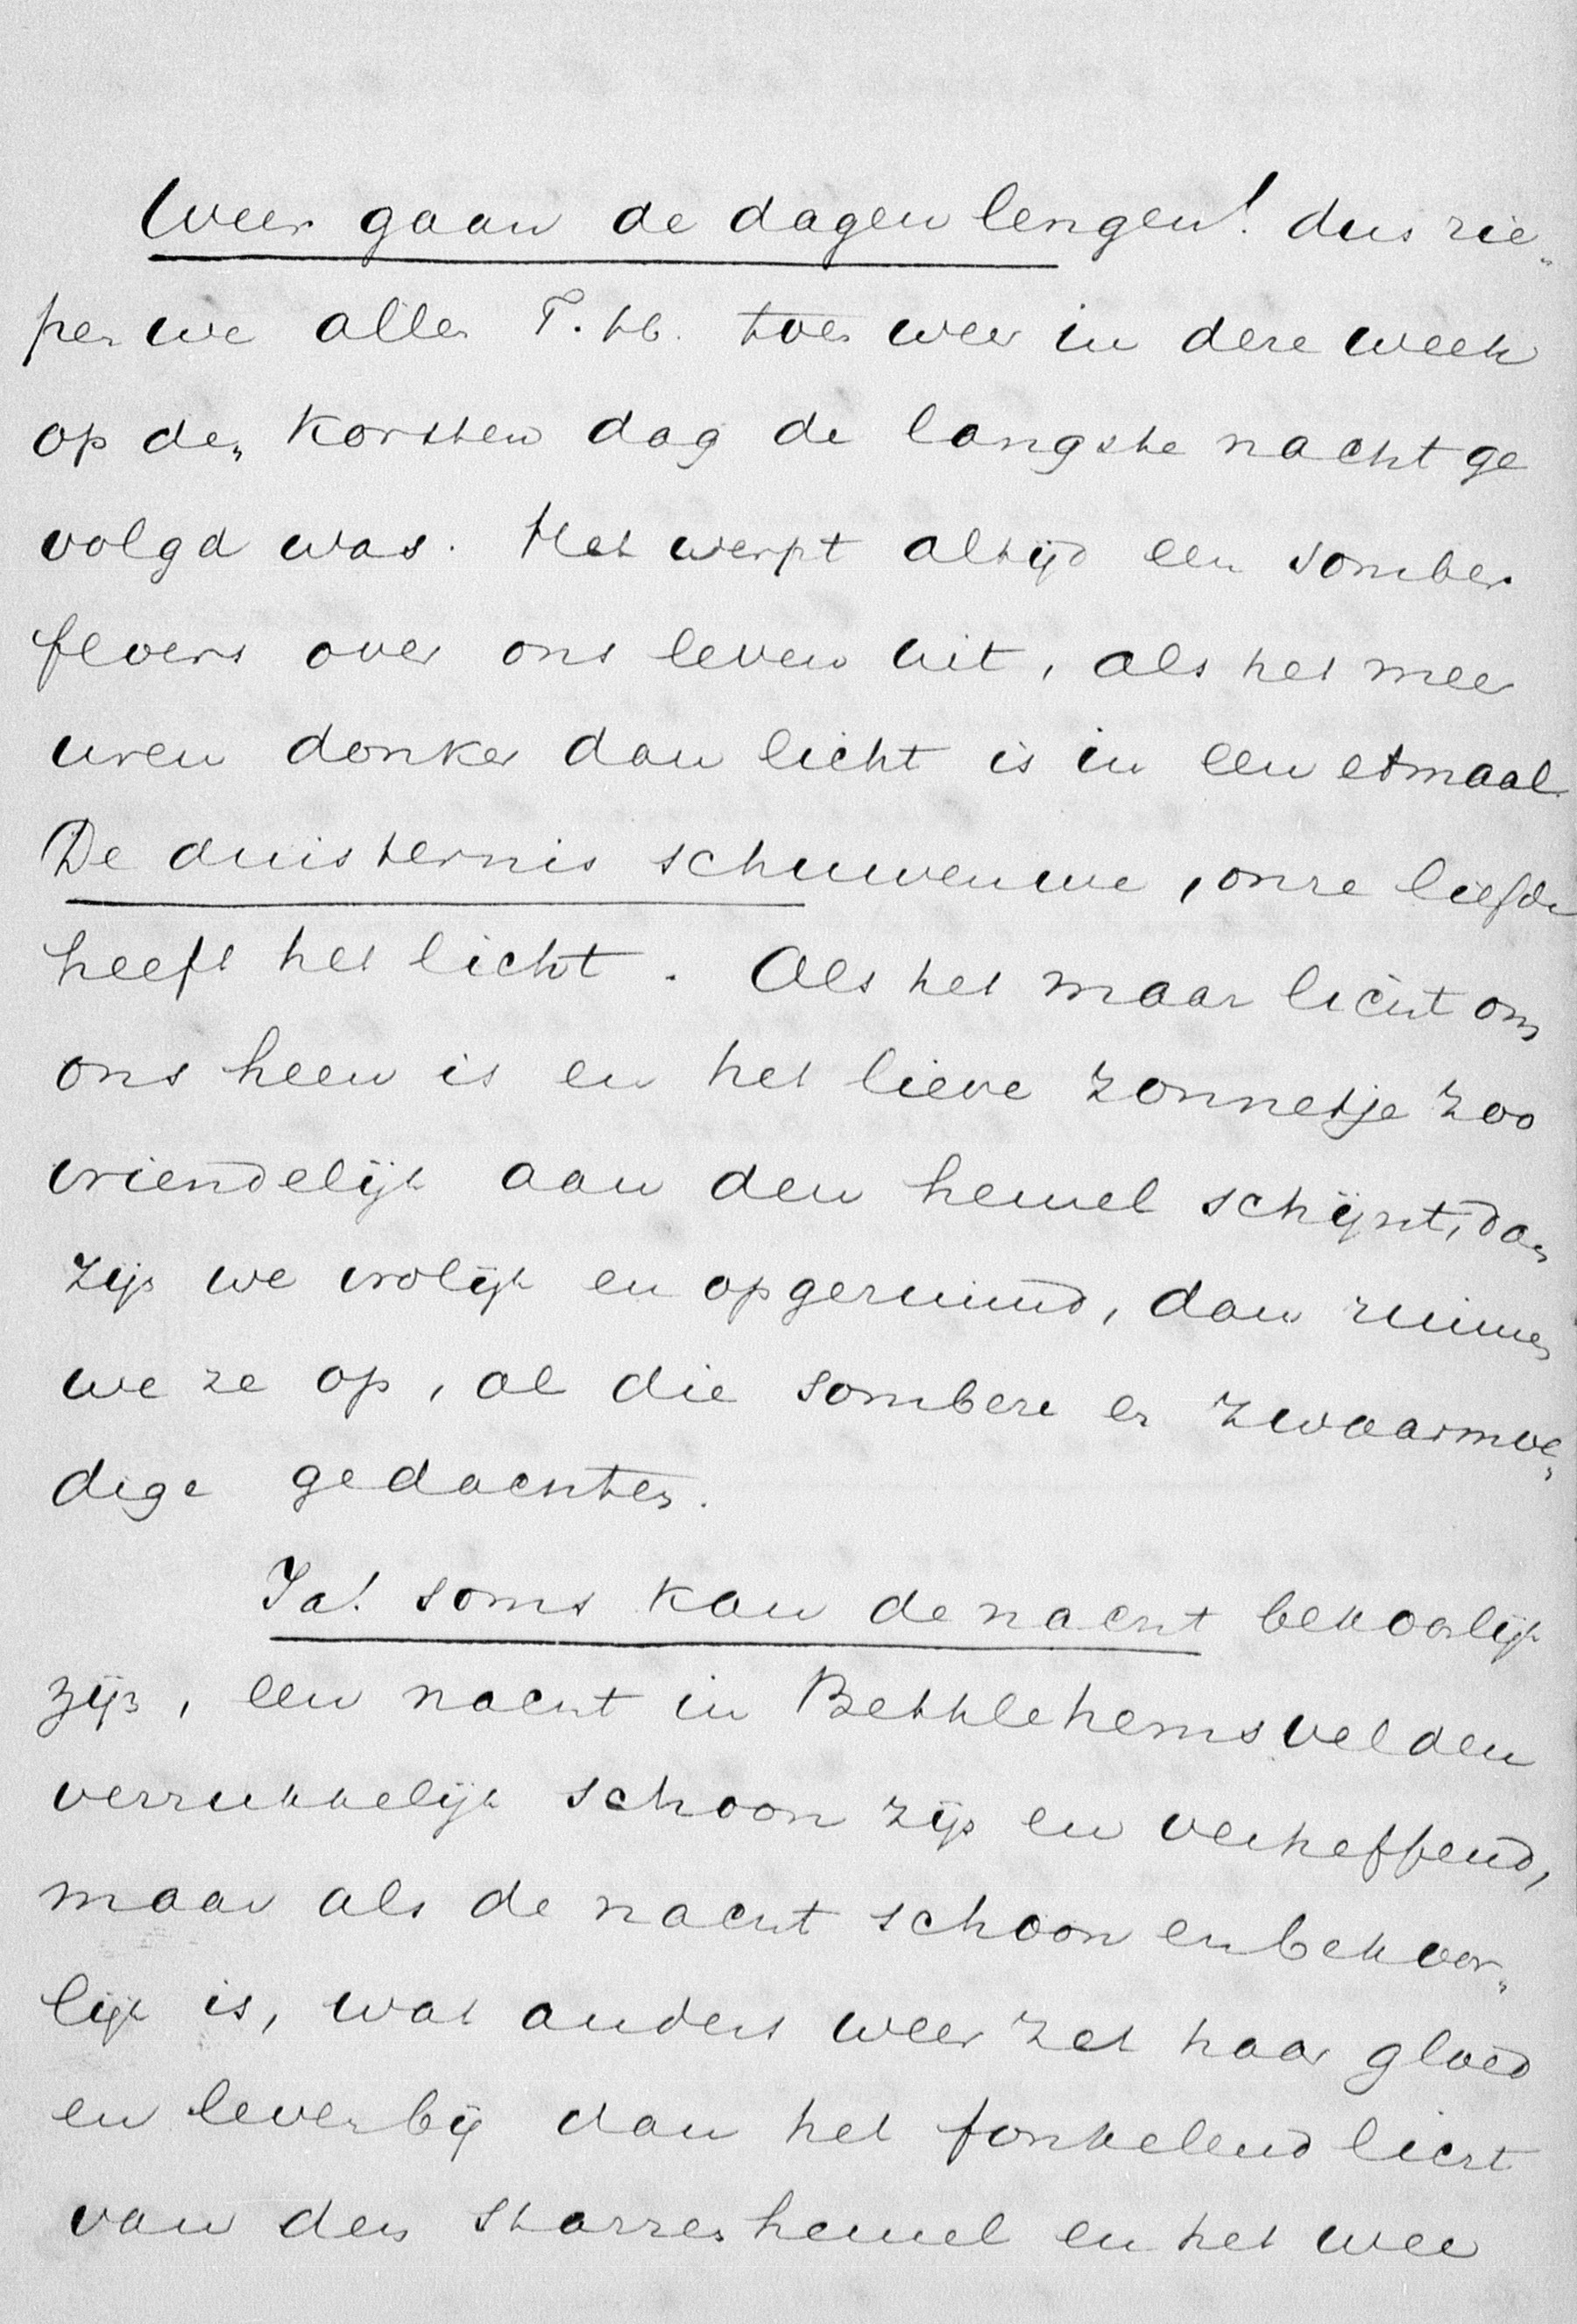 Weer gaan de dagen lengen! dus rie„
pen we allen T. hb. toen weer in deze week
op den korsten dag de langste nacht ge
volgd was. Het werpt altijd een somber
floers over ons leven uit, als het meer
uren donker dan licht is in een etmaal.
De duisternis schuwen we, onze liefde
heeft het licht. Als het maar licht om
ons heen is en het lieve zonnetje zoo
vriendelijk aan den hemel schijnt, dan
zijn we vrolijk en opgeruimd, dan ruimen
we ze op, al die sombere en zwaarmoe„
dige gedachten.
Ja! soms kan de nacht bekoorlijk
zijn, een nacht in Bethlehems velden
verrukkelijk schoon zijn en verheffend,
maar als de nacht schoon en bekoor„
lijk is, wat anders weer zet haar gloed
en leven bij dan het fonkelend licht
van den starrenhemel en het wee